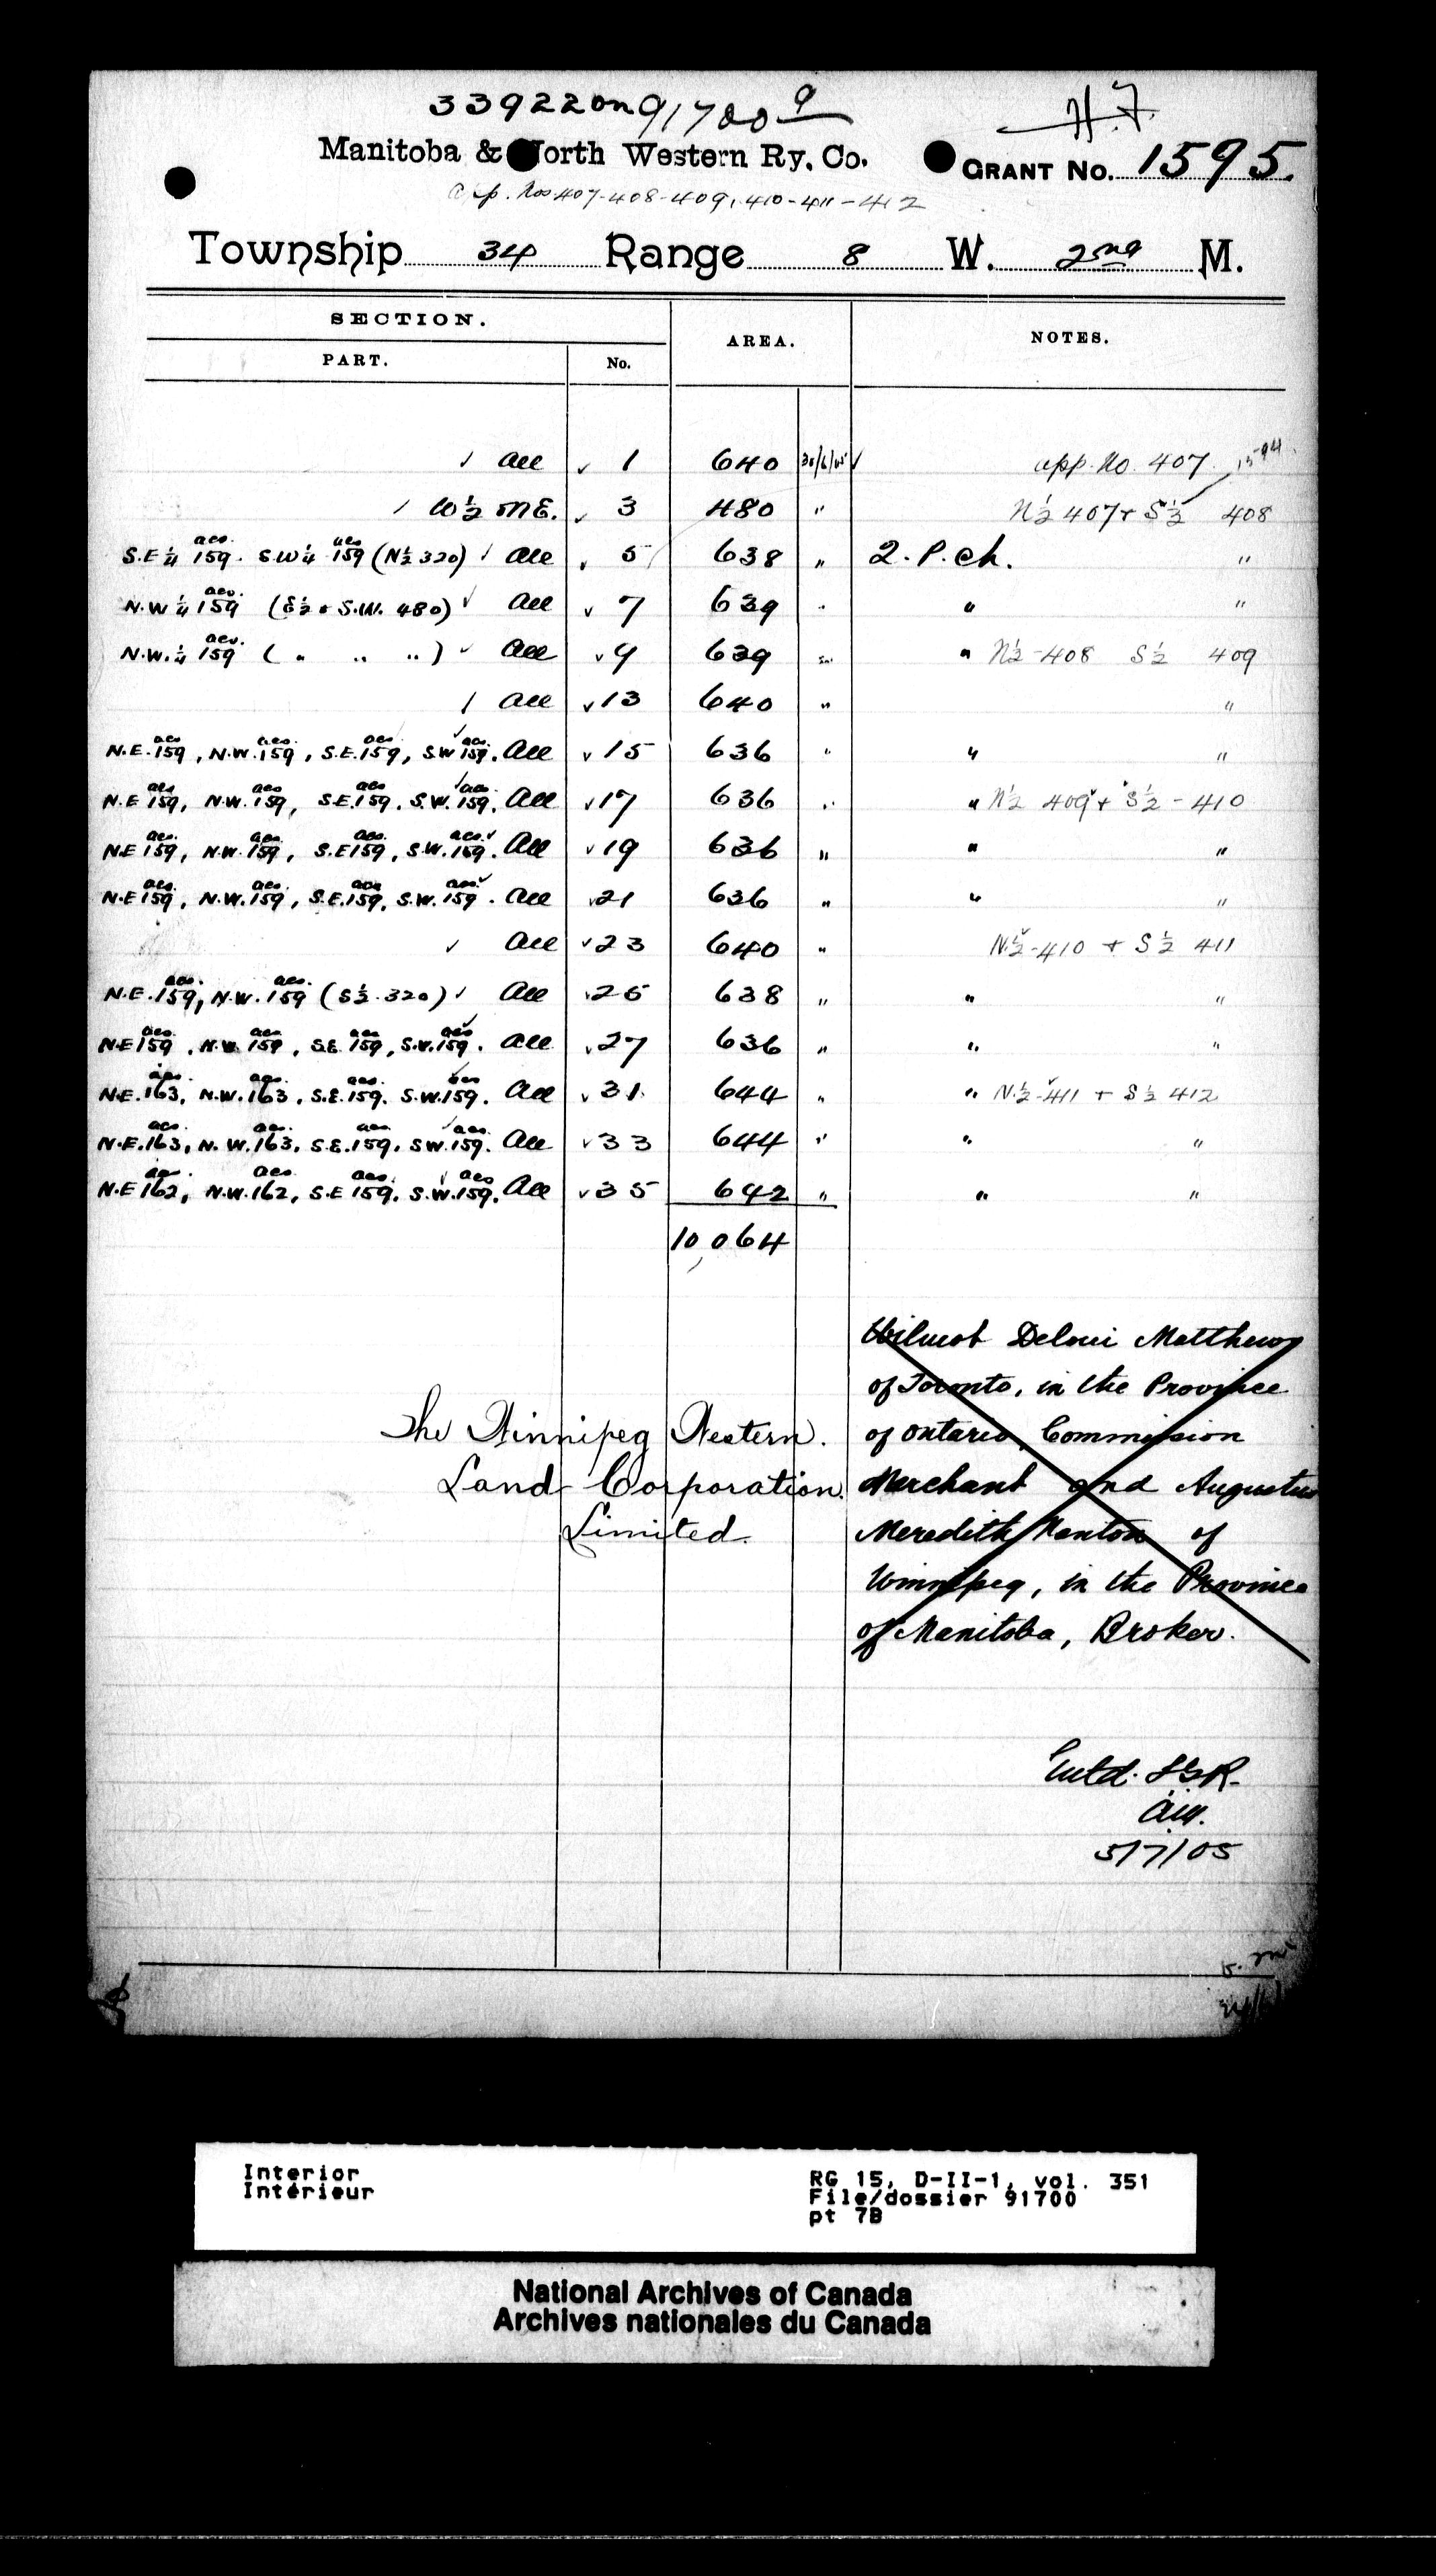 339220 on 91700 9
H.F.
Manitoba & North Western Ry. Co. GRANT NO. 1595.
App. Nos 407-408-409, 410-411-412
Township 34 Range 8 W. 2nd M.
SECTION. AREA. NOTES.
PART. No.
All 1 640 30/6/05 app. No. 407 1594
W½ NE. 3 480 " N½ 407 + S½ 408
S.E¼ acs. 159. S.W¼ acs 159 (N½ 320) All 5 638 " 2. P. ch. "
N.W¼ acs. 159 (E½ + S.W. 480) All 7 639 " " "
N.W.¼ acs. 159 ( " " " ) All 9 639 " " N½-408 S½ 409
All 13 640 " "
N.E. acs 159, N.W. acs. 159, S.E. acs 159, S.W acs. 159. All 15 636 " " "
N.E acs 159, N.W. acs 159, S.E. acs 159. S.W. acs. 159. All 17 636 " " N½ 409 + S½ - 410
N.E acs. 159, N.W. acs. 159, S.E acs. 159, S.W. acs. 159. All 19 636 " " "
N.E acs. 159, N.W. acs. 159, S.E. acs 159, S.W. acs. 159. All 21 636 " " "
All 23 640 " N½-410 + S½ 411
N.E. acs. 159, N.W. acs. 159 (S½ 320) All 25 638 " " "
N.E acs. 159, N.W. acs. 159, S.E. acs 159, S.W. acs 159. All 27 636 " " "
N.E. acs. 163, N.W. acs. 163, S.E. acs. 159. S.W. acs 159. All 31 644 " " N½-411 + S½ 412
N.E. acs. 163, N.W. acs. 163, S.E. acs. 159. S.W. acs. 159. All 33 644 " " "
N.E acs. 162, N.W. acs. 162, S.E acs. 159. S.W. acs 159. All 35 642 " " "
10,064
Wilmot Deloui Matthews
of Toronto, in the Province
of Ontario, Commission
Merchant and Augustus
Meredith Nanton of
Winnipeg, in the Province
of Manitoba, Broker.
The Winnipeg Western
Land Corporation
Limited.
Entd. LGR
5/7/05
Interior
Intérieur
RG 15, D-II-1, vol. 351
File/dossier 91700
pt 7B
National Archives of Canada
Archives nationales du Canada